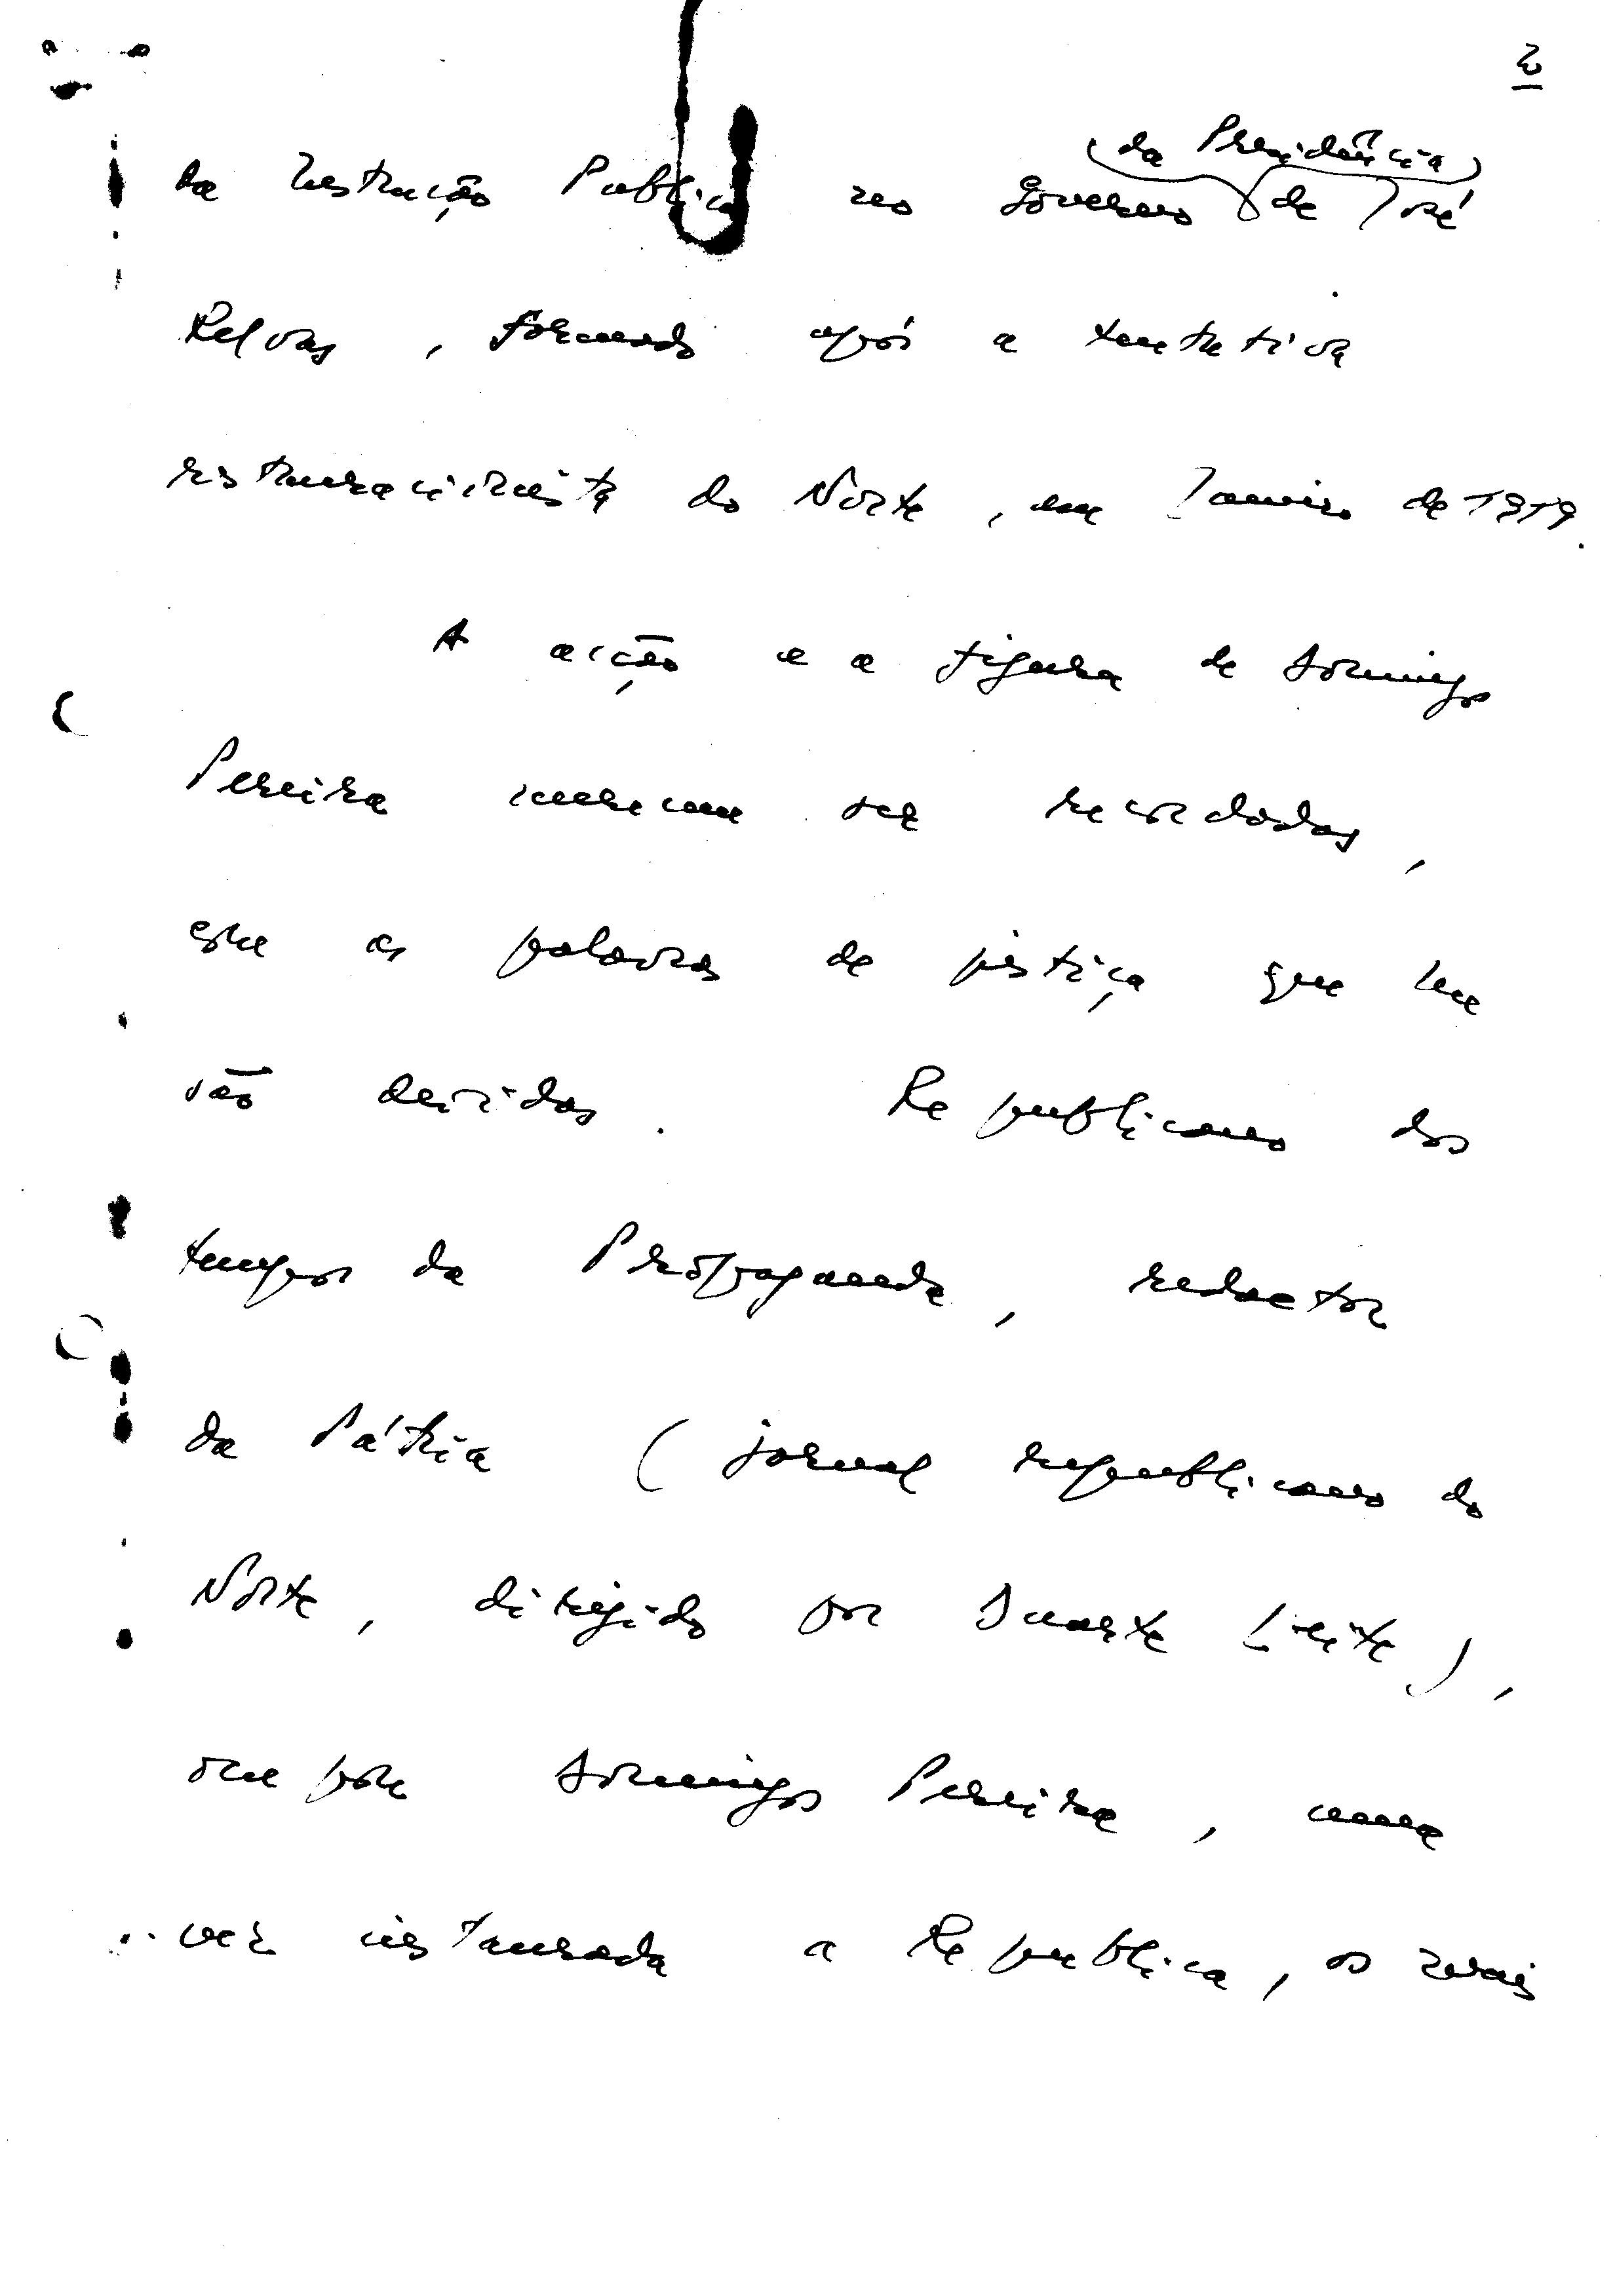 2
da Presidência
da Instrução Publica no Governo de José
Relvas, formado após a tentativa
restauracionista do Norte, em Janeiro de 1919.
A acção e a figura de Domingos
Pereira merecem ser recordadas,
as palavras de justiça que lhe
são devidas. Republicano dos
tempos da Propaganda, redactor
da Pátria (jornal republicano do
Norte, dirigido por Duarte Leite),
Domingos Pereira, uma
vez instaurada a Republica, os mais